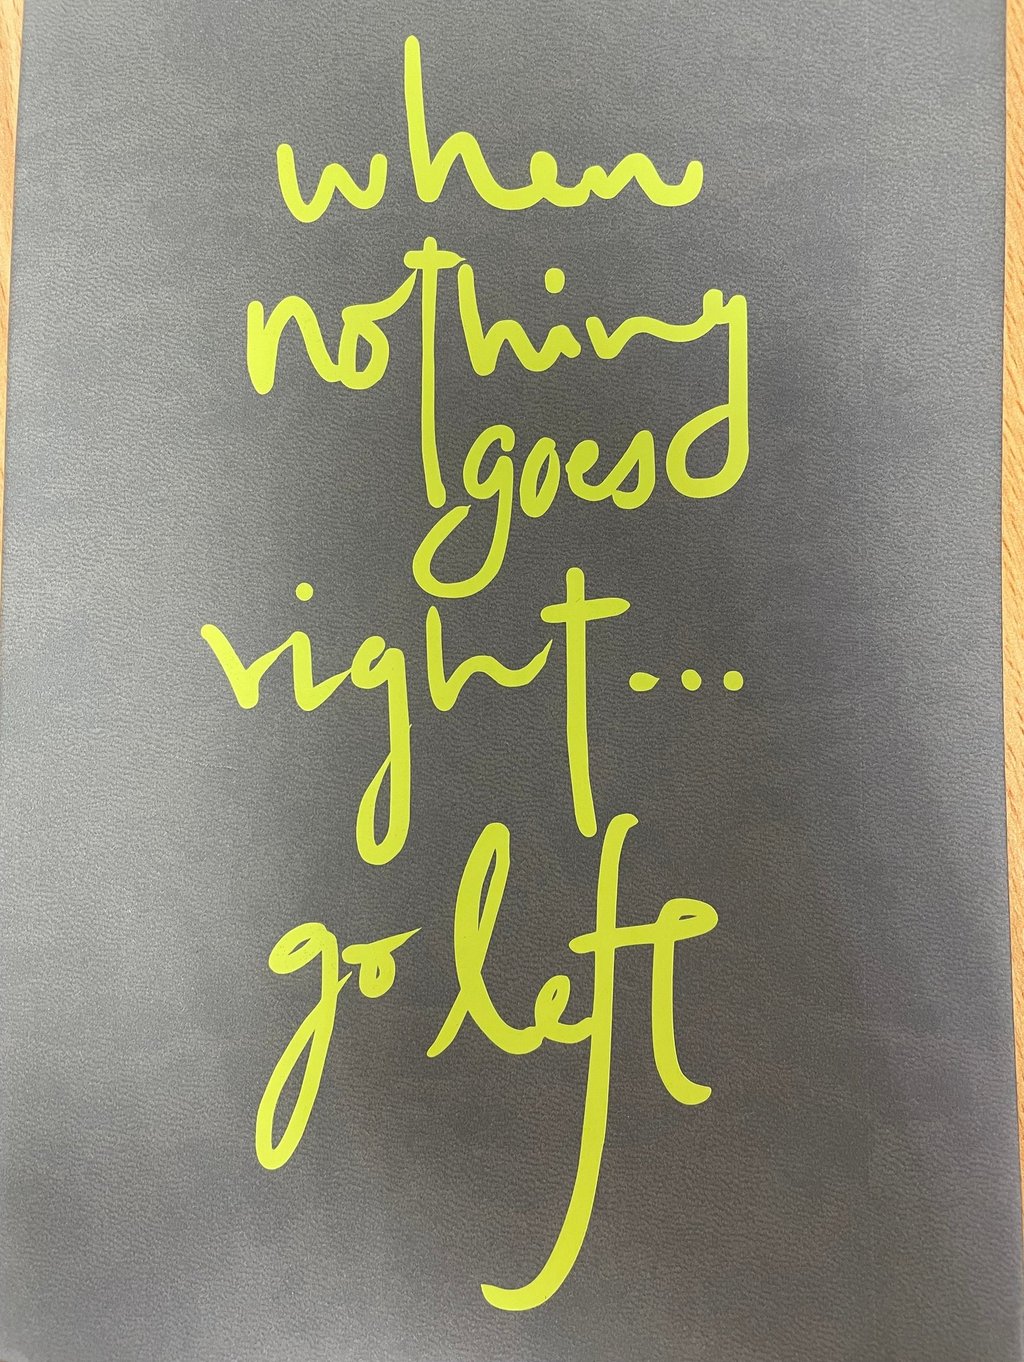 when
nothing
goes
right...
go left